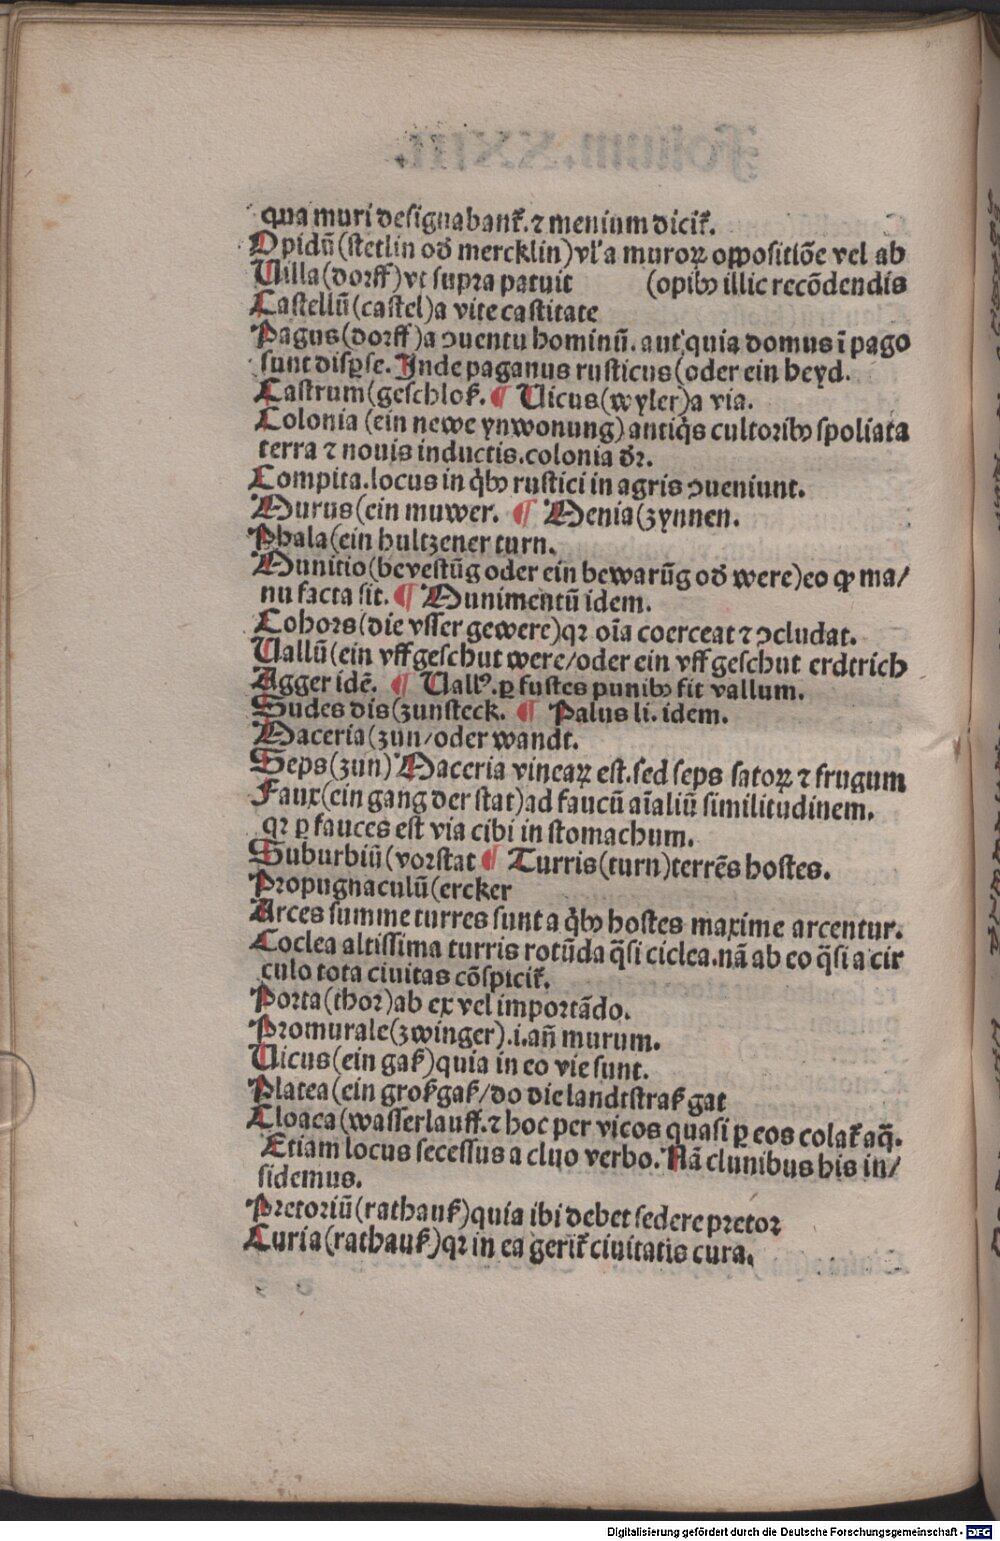 qua muri designabant᷑. ⁊ menium dicit᷑.
Opidū (stetlin oď mercklin) vl' a muroꝝ oppositiōe vel ab
Uilla (dorff) vt supra patuit (opibꝰ illic recōdendis
Castellū (castel) a vite castitate
Pagus (dorff) a ↄuentu hominū. aut quia domus ī pago
sunt disꝑse. Inde paganus rusticus (oder ein heyd.
Castrum (geschloß. ¶ Uicus (wyler) a via.
Colonia (ein newe ynwonung) antiq̄s cultoribꝰ spoliata
terra ⁊ nouis inductis. colonia ďr.
Compita. locus in q̇bꝰ rustici in agris ↄueniunt.
Murus (ein muwer. ¶ Menia (zynnen.
Phala (ein hultzener turn.
Munitio (bevestūg oder ein bewarūg oď were) eo ꝙ ma/
nu facta sit. ¶ Munimentū idem.
Cohors (die vsser gewere) qꝛ oīa coerceat ⁊ ↄcludat.
Uallū (ein vffgeschut were/oder ein vffgeschut erdtrich
Agger idē. ¶ Uallꝰ. ꝑ fustes punibꝰ fit vallum.
Sudes dis (zunsteck. ¶ Palus li. idem.
Maceria (zun/oder wandt.
Seps (zun) Maceria vineaꝝ est. sed seps satoꝝ ⁊ frugum
Faux (ein gang der stat) ad faucū aīaliū similitudinem.
qꝛ ꝑ fauces est via cibi in stomachum.
Suburbiū (vorstat ¶ Turris (turn) terrēs hostes.
Propugnaculū (ercker
Arces summe turres sunt a q̇bꝰ hostes maxime arcentur.
Coclea altissima turris rotūda q̄si ciclea. nā ab eo q̄si a cir
culo tota ciuitas cōspicit᷑.
Porta (thor) ab ex vel importādo.
Promurale (zwinger) .i. añ murum.
Uicus (ein gaß) quia in eo vie sunt.
Platea (ein großgaß/do die landtstraß gat
Cloaca (wasserlauff. ⁊ hoc per vicos quasi ꝑ eos colat᷑ aq̄.
Etiam locus secessus a cluo verbo. Nā clunibus his in/
sidemus.
Pretoriū (rathauß) quia ibi debet sedere pretor
Curia (rathauß) qꝛ in ea gerit᷑ ciuitatis cura.
Digitalisierung gefördert durch die Deutsche Forschungsgemeinschaft - DFG